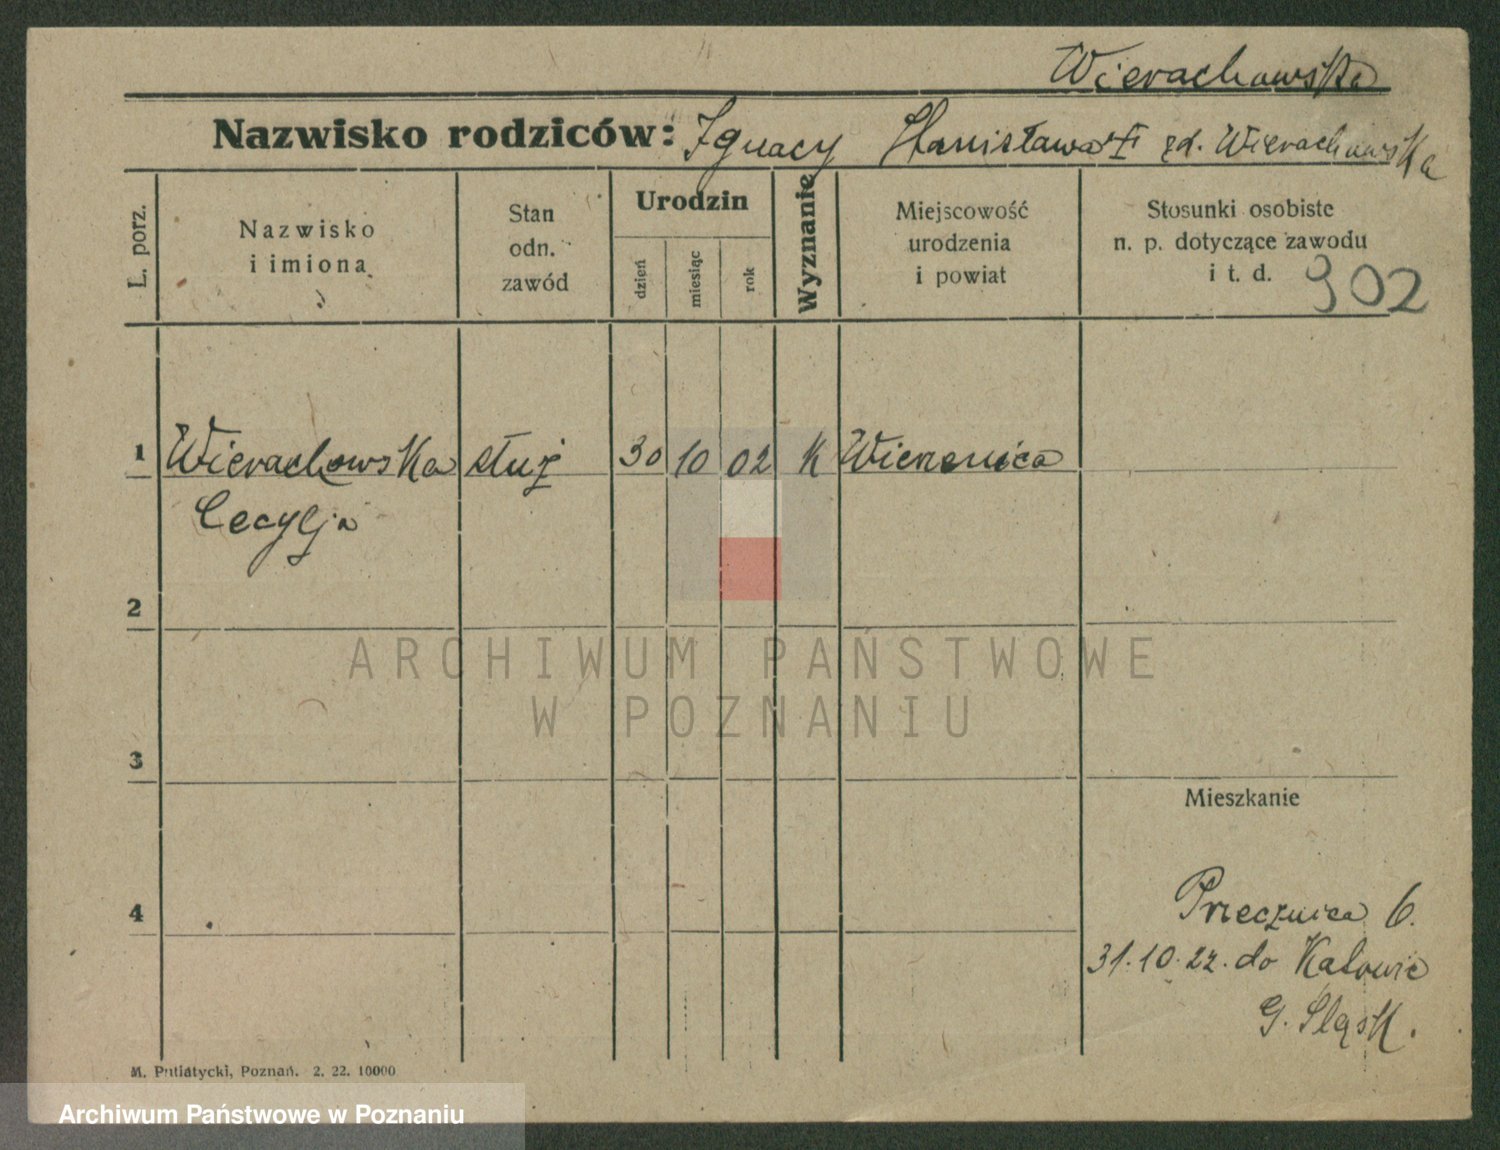 Wierachowska
Nazwisko rodziców: Ignacy Stanisława zd. Wierachowska
L. porz.
Nazwisko
i imiona
Stan
odn.
zawód
Urodzin
dzień
miesiąc
rok
Wyznanie
Miejscowość
urodzenia
i powiat
Stosunki osobiste
n. p. dotyczące zawodu
i t. d. 902
1 Wierachowska służ 30 10 02 K Wierzenica
Cecylja
2
ARCHIWUM PAŃSTWOWE
W POZNANIU
3
Mieszkanie
4
Przecznica 6.
31.10.22. do Katowic
G. Śląsk.
M. Putiatycki, Poznań. 2. 22. 10000
Archiwum Państwowe w Poznaniu